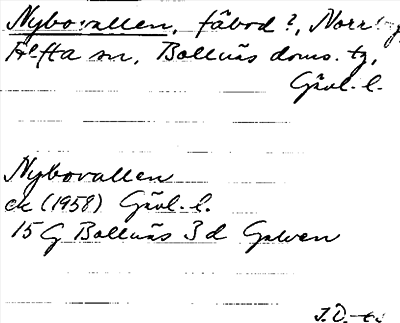 Nybovallen, fäbod?, Norrbo,
Alfta sn, Bollnäs doms. tg,
Gävl. l.
Nybovallen
ek (1958) Gävl. l.
15 G Bollnäs 3 d Galven